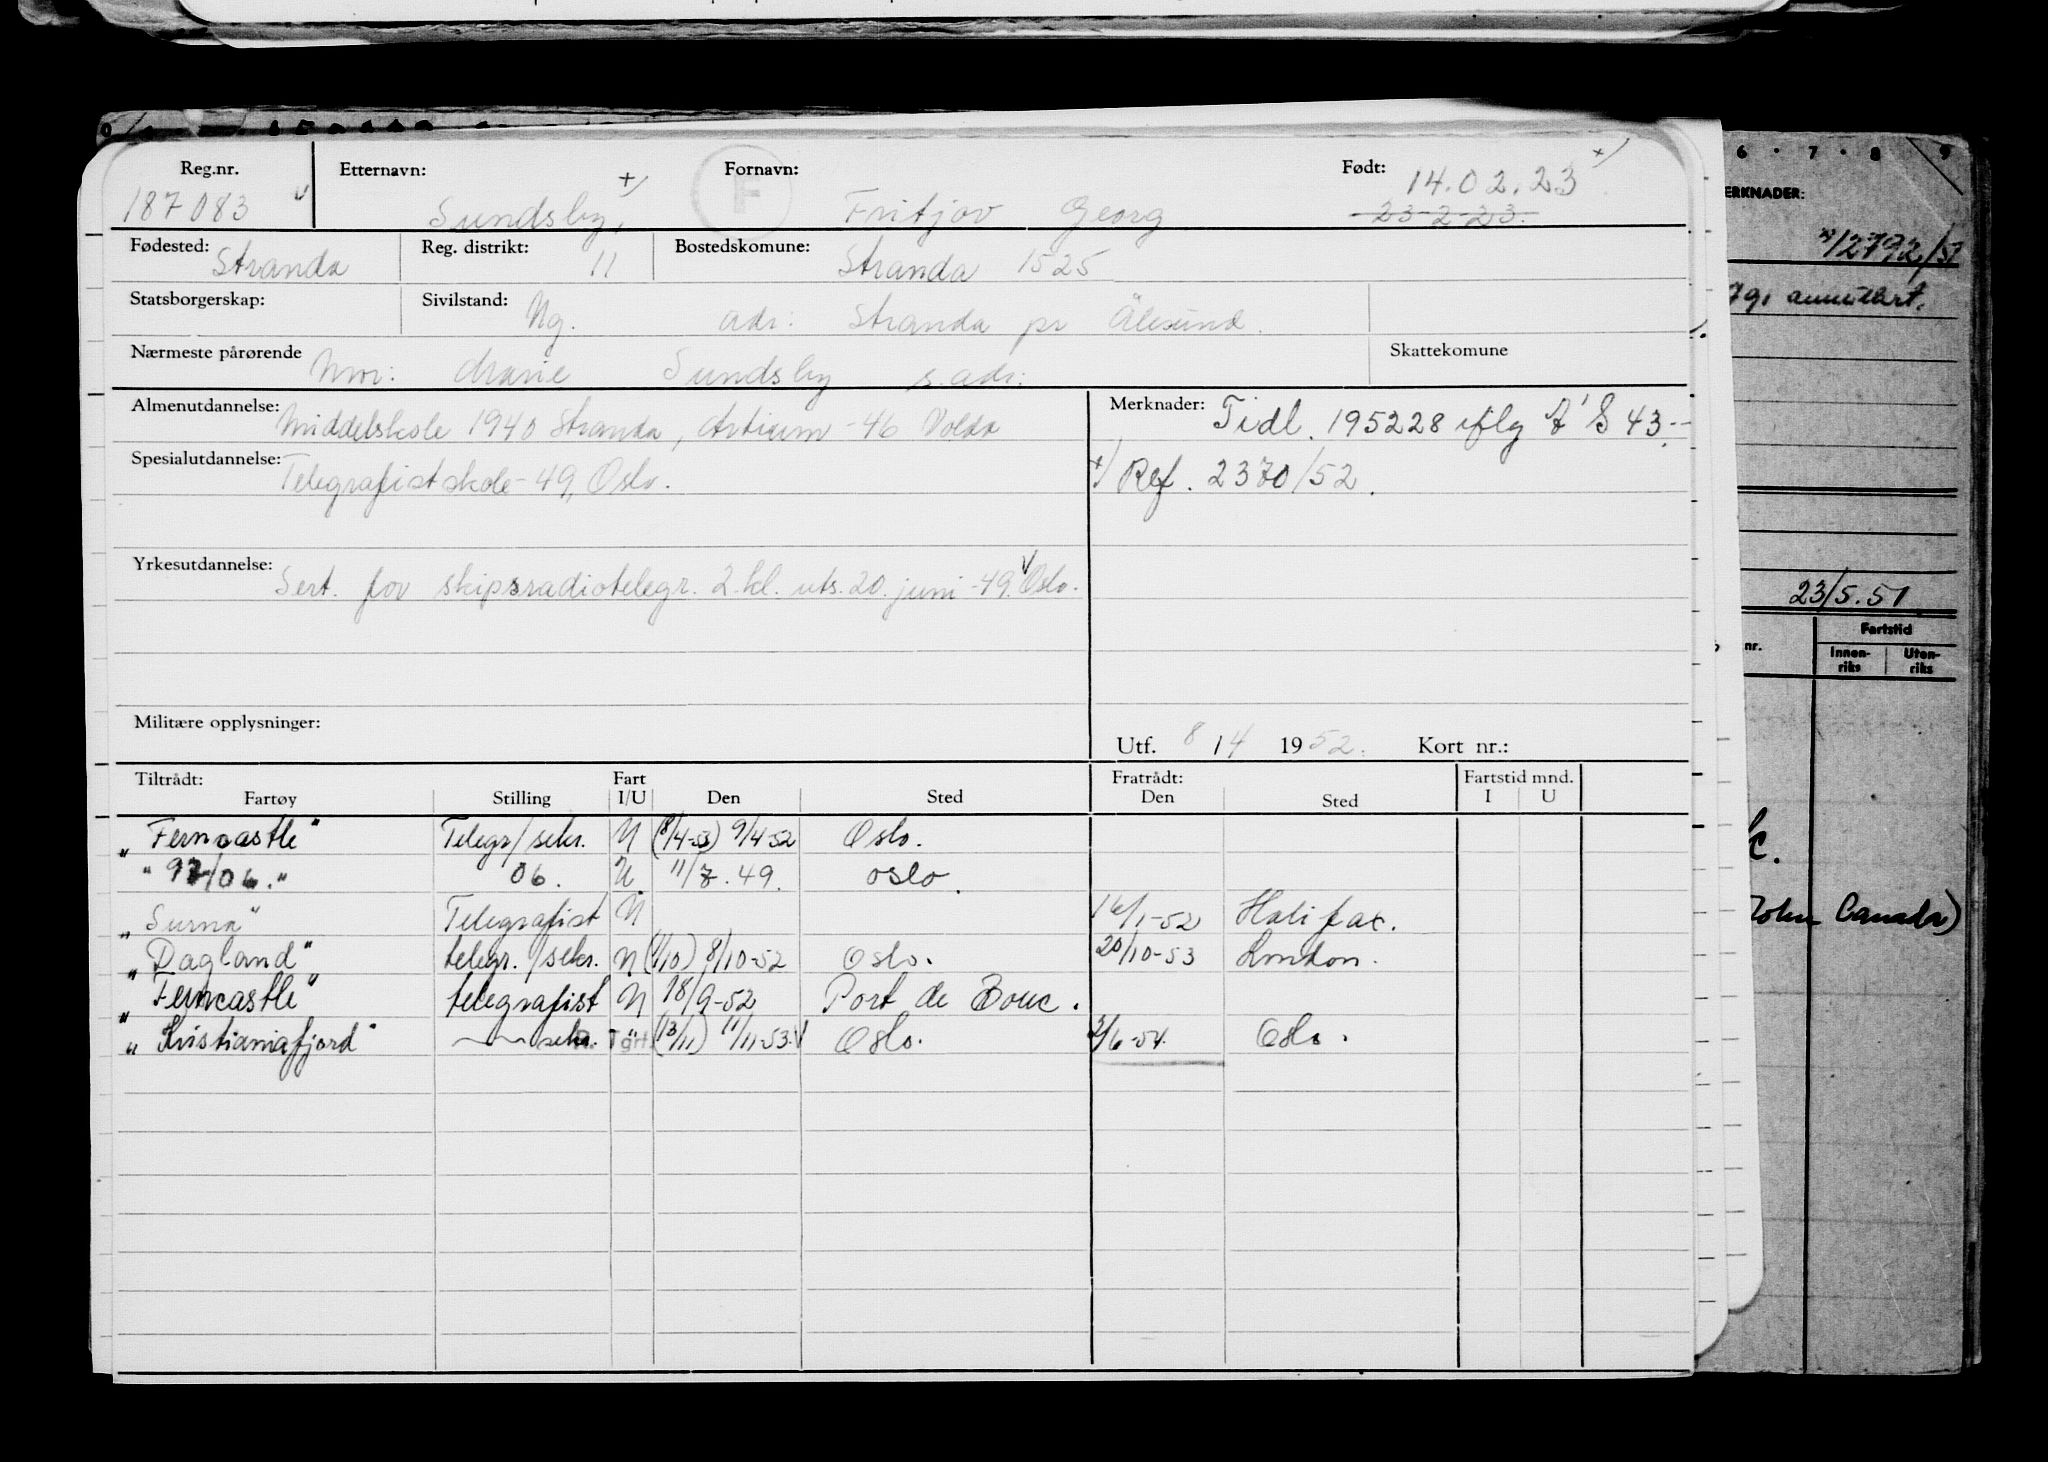 Reg.nr. Etternavn: Fornavn: Født: 14.02.23
187083 Sundsby, F Fritjov Georg 23-2-23.
Fødested: Stranda Reg. distrikt: 11 Bostedskomune: Stranda 1525
Statsborgerskap: Sivilstand: Ug. adr: Stranda pr Ålesund.
Nærmeste pårørende Mor: Marie Sundsby s. adr: Skattekomune
Almenutdannelse: Middelskole 1940 Stranda, Artium -46 Volda Merknader: Tidl. 195228 iflg A'S 43.
Spesialutdannelse: Telegrafistskole -49, Oslo. +) Ref. 2370/52.
Yrkesutdannelse: Sert. for skipsradiotelegr. 2. kl. uts. 20. juni -49. Oslo.
Militære opplysninger: Utf. 8/4 1952. Kort nr.:
Tiltrådt: Fart Fratrådt: Fartstid mnd.
Fartøy Stilling I/U Den Sted Den Sted I U
"Ferncastle" Telegr/sekr. U (8/4-53) 9/4-52 Oslo.
"97/06." 06. U 11/7.49. Oslo.
"Surna" Telegrafist U 16/1-52 Halifax.
"Dagland" telegr./sekr. U (1/10) 8/10-52 Oslo. 20/10-53 London.
"Ferncastle" telegrafist U 18/9-52 Port de Bouc.
"Kristianiafjord" sekr. R. Tgrt. (13/11) 11/11-53 Oslo. 2/6-54. Oslo.
6 · 7 · 8 9
ERKNADER:
12792/51
annullert.
23/5.51
nr. Fartstid
Innen-riks Uten-riks
John Canada)